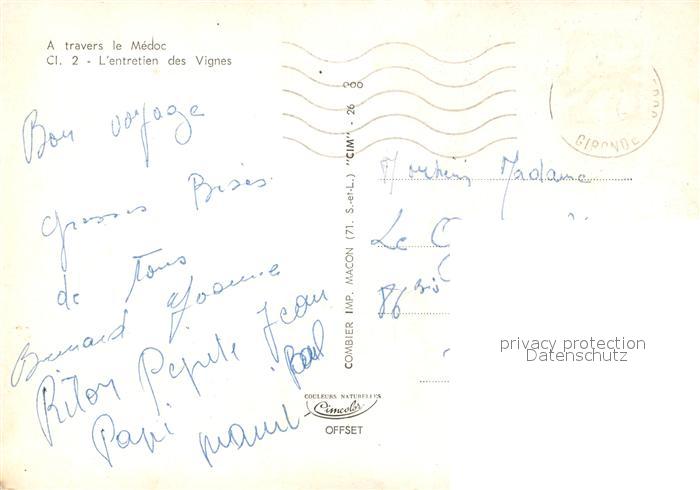 A travers le Médoc
Cl. 2 - L'entretien des Vignes
Bon voyage
Grosses Bises
de Tous
Bernard Yvonne
Riton Pépete Jean
Paul
Papi mami
COMBIER IMP. MACON (71. S.-et-L.) "CIM" - 26 000
COULEURS NATURELLES
Cimcolor
OFFSET
GIRONDE
Madame
Le
86 bis
privacy protection
Datenschutz